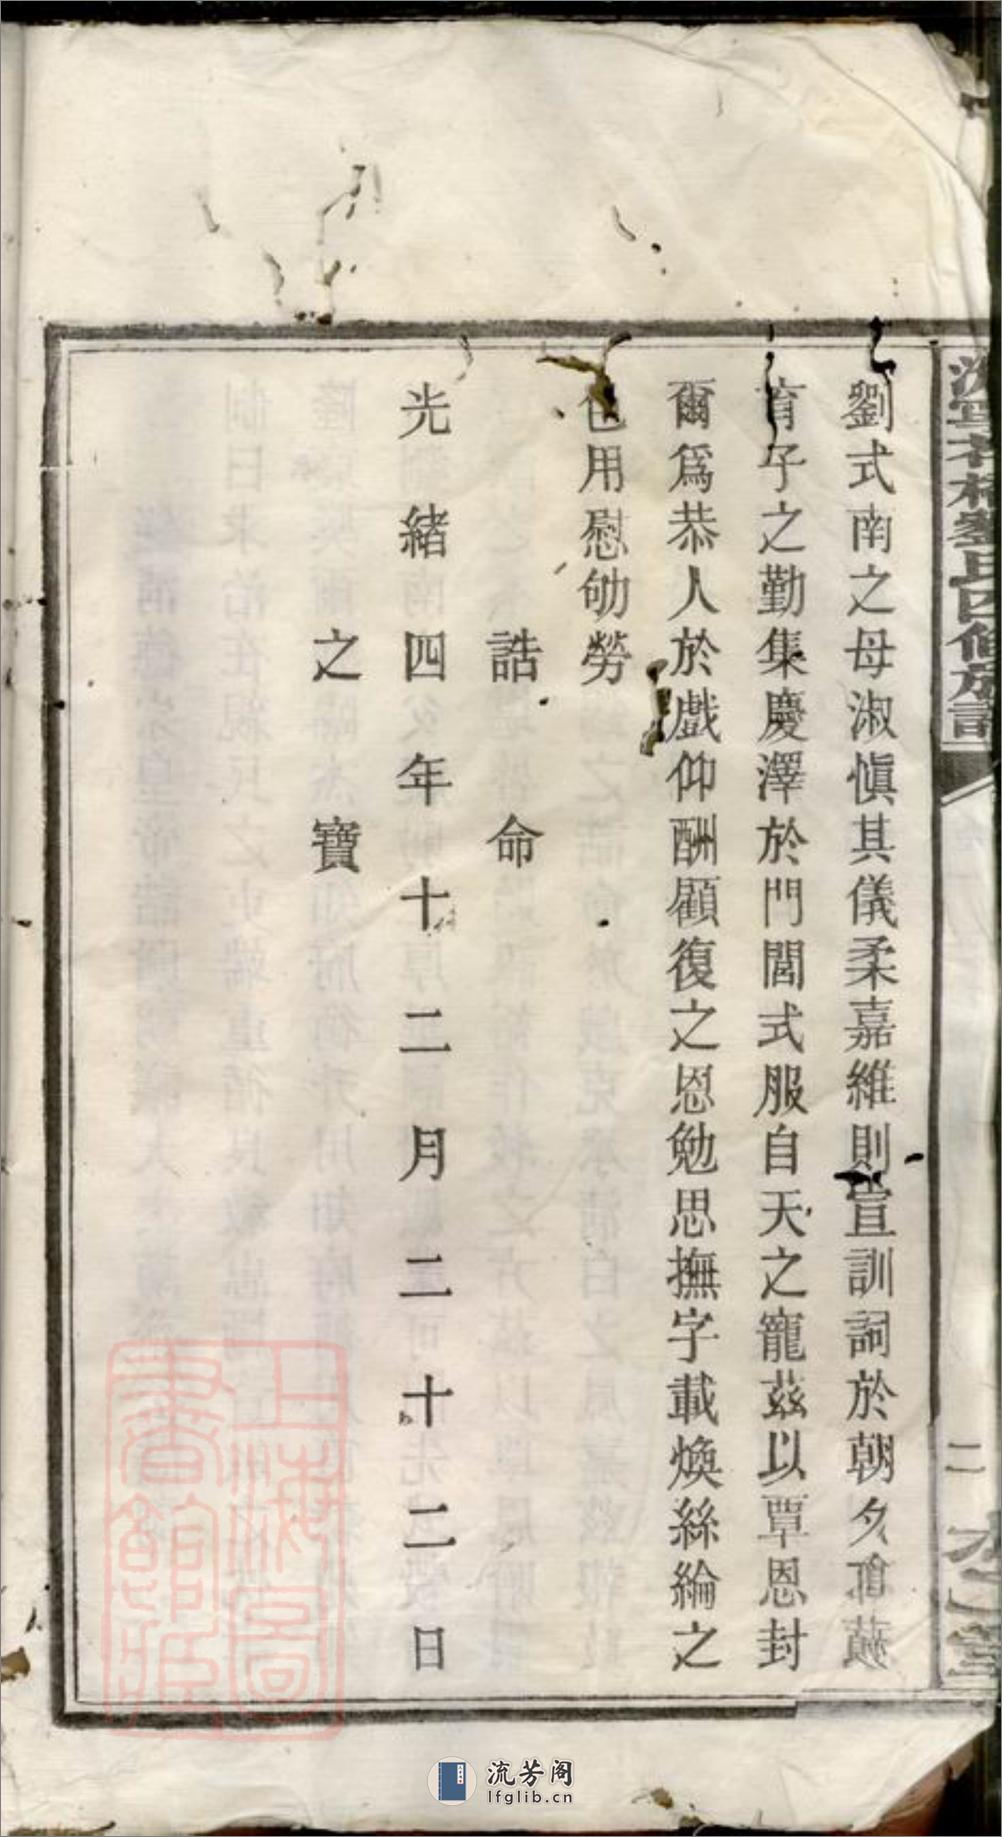 劉式南之母淑愼其儀柔嘉維則宣訓詞於朝夕
育子之勤集慶澤於門閭式服自天之寵茲以覃恩封
爾爲恭人於戲仰酬顧復之恩勉思撫字載煥絲綸之
也用慰劬勞
誥命
光緒四年十二月二十二日
之寶
劉氏四修族譜
二
堂
上海圖書館藏
流芳阁
lfglib.cn